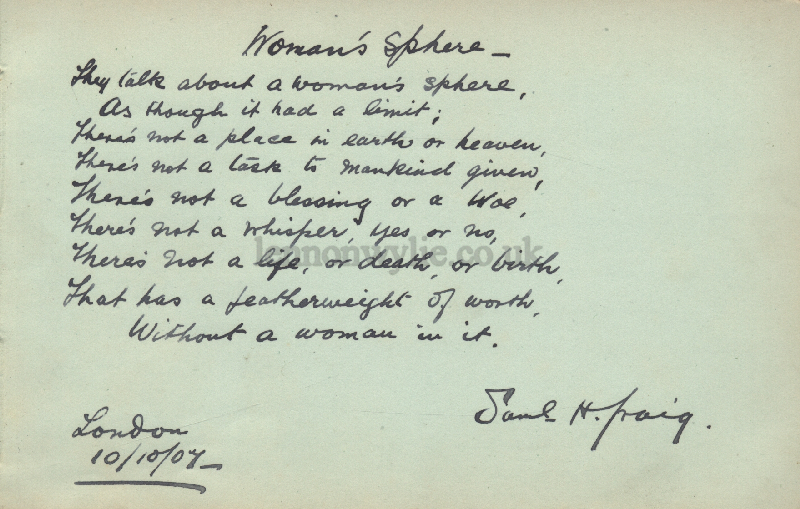 Woman's Sphere —
They talk about a woman's sphere,
As though it had a limit;
There's not a place in earth or heaven,
There's not a task to mankind given,
There's not a blessing or a Woe,
There's not a whisper, yes, or no,
There's not a life, or death, or birth,
That has a featherweight of worth,
Without a woman in it.
lennonwylie.co.uk
Saml H. Craig.
London
10/10/07 —